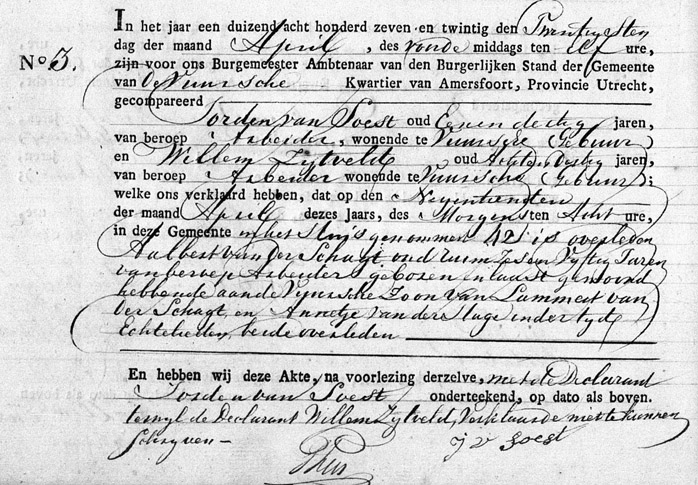 In het jaar een duizend acht honderd zeven en twintig den Twintigsten
dag der maand April, des voorde middags ten elf ure,
No 3. zijn voor ons Burgemeester Ambtenaar van den Burgerlijken Stand der Gemeente
van De Vuursche Kwartier van Amersfoort, Provincie Utrecht,
gecompareerd
Jorden van Soest oud Een en dertig jaren,
van beroep Arbeider, wonende te Vuursche (gebuur)
en Willem Zytveld oud Acht en dertig jaren,
van beroep Arbeider wonende te Vuursche (gebuur);
welke ons verklaard hebben, dat op den Negentienden
der maand April dezes Jaars, des Morgens ten Acht ure,
in deze Gemeente in het Huijs genommen 42 is overleden
Aalbert van der Schagt oud ruim Zes en Vyftig Jaren
van beroep Arbeider geboren en laast gewoond
hebbende aan de Vuursche Zoon van Lammert van
der Schagt, en Annetje van der Slage in der tyd
Echtelieden, beide overleden
En hebben wij deze Akte, na voorlezing derzelve, met de Declarant
Jorden van Soest onderteekend, op dato als boven.
terwyl de Declarant Willem Zytveld, Verklaarde niet te kunnen
schryven
j v Soest